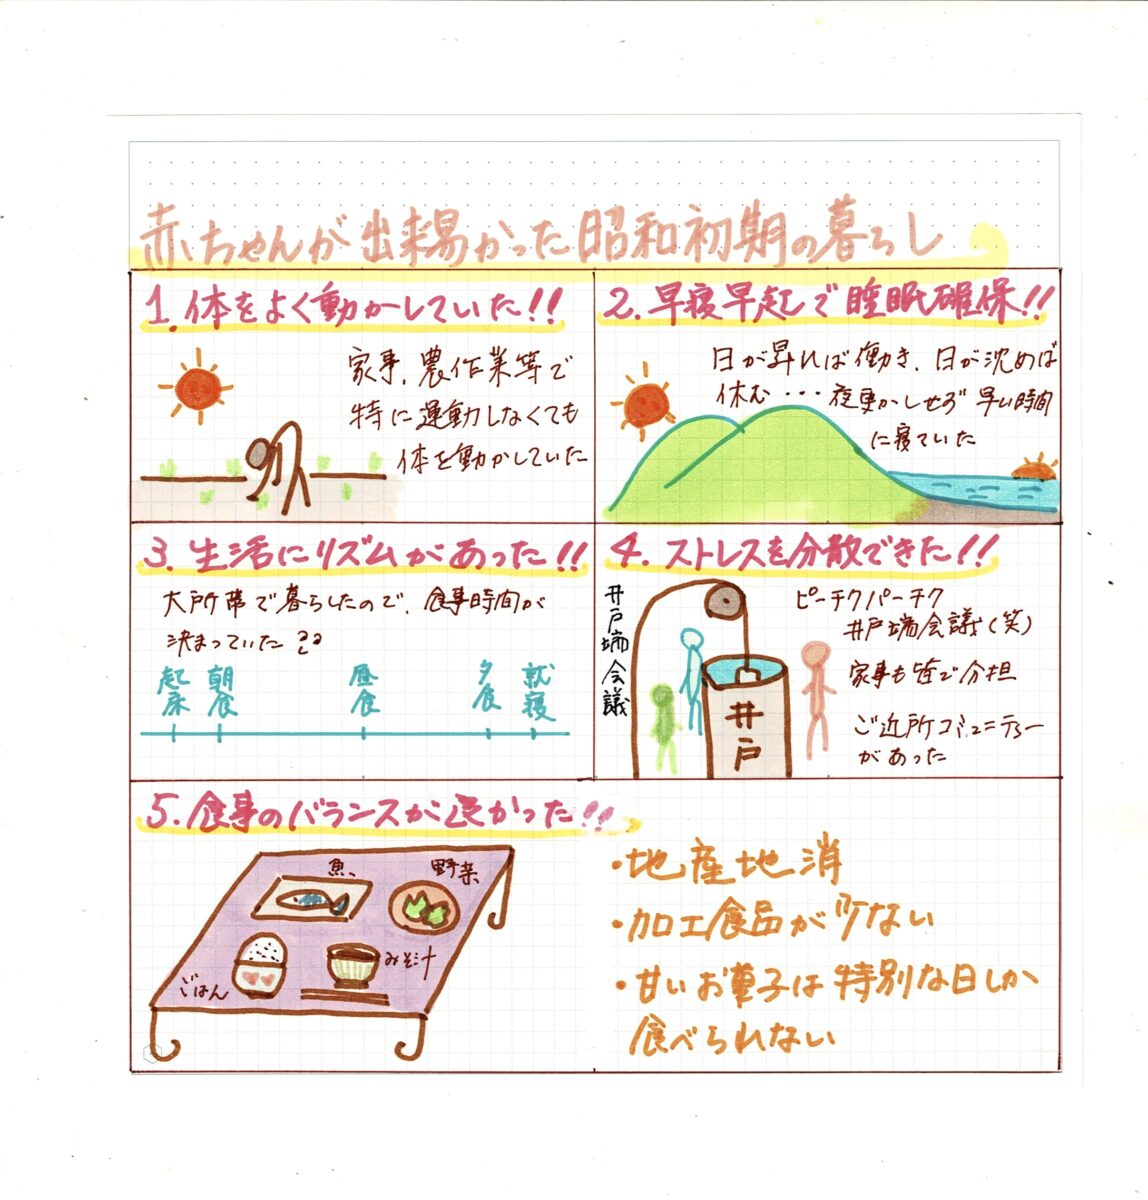 赤ちゃんが出来易かった昭和初期の暮らし
1.体をよく動かしていた!!
家事、農作業等で
特に運動しなくても
体を動かしていた
2.早寝早起で睡眠確保!!
日が昇れば働き、日が沈めば
休む・・・夜更かしせず早い時間
に寝ていた
3.生活にリズムがあった!!
大所帯で暮らしたので、食事時間が
決まっていた
起床
朝食
昼食
夕食
就寝
4.ストレスを分散できた!!
井戸端会議
井戸
ピーチクパーチク
井戸端会議(笑)
家事も皆で分担
ご近所コミュニティー
があった
5.食事のバランスが良かった!!
魚
野菜
ごはん
みそ汁
・地産地消
・加工食品が少ない
・甘いお菓子は特別な日しか
食べられない